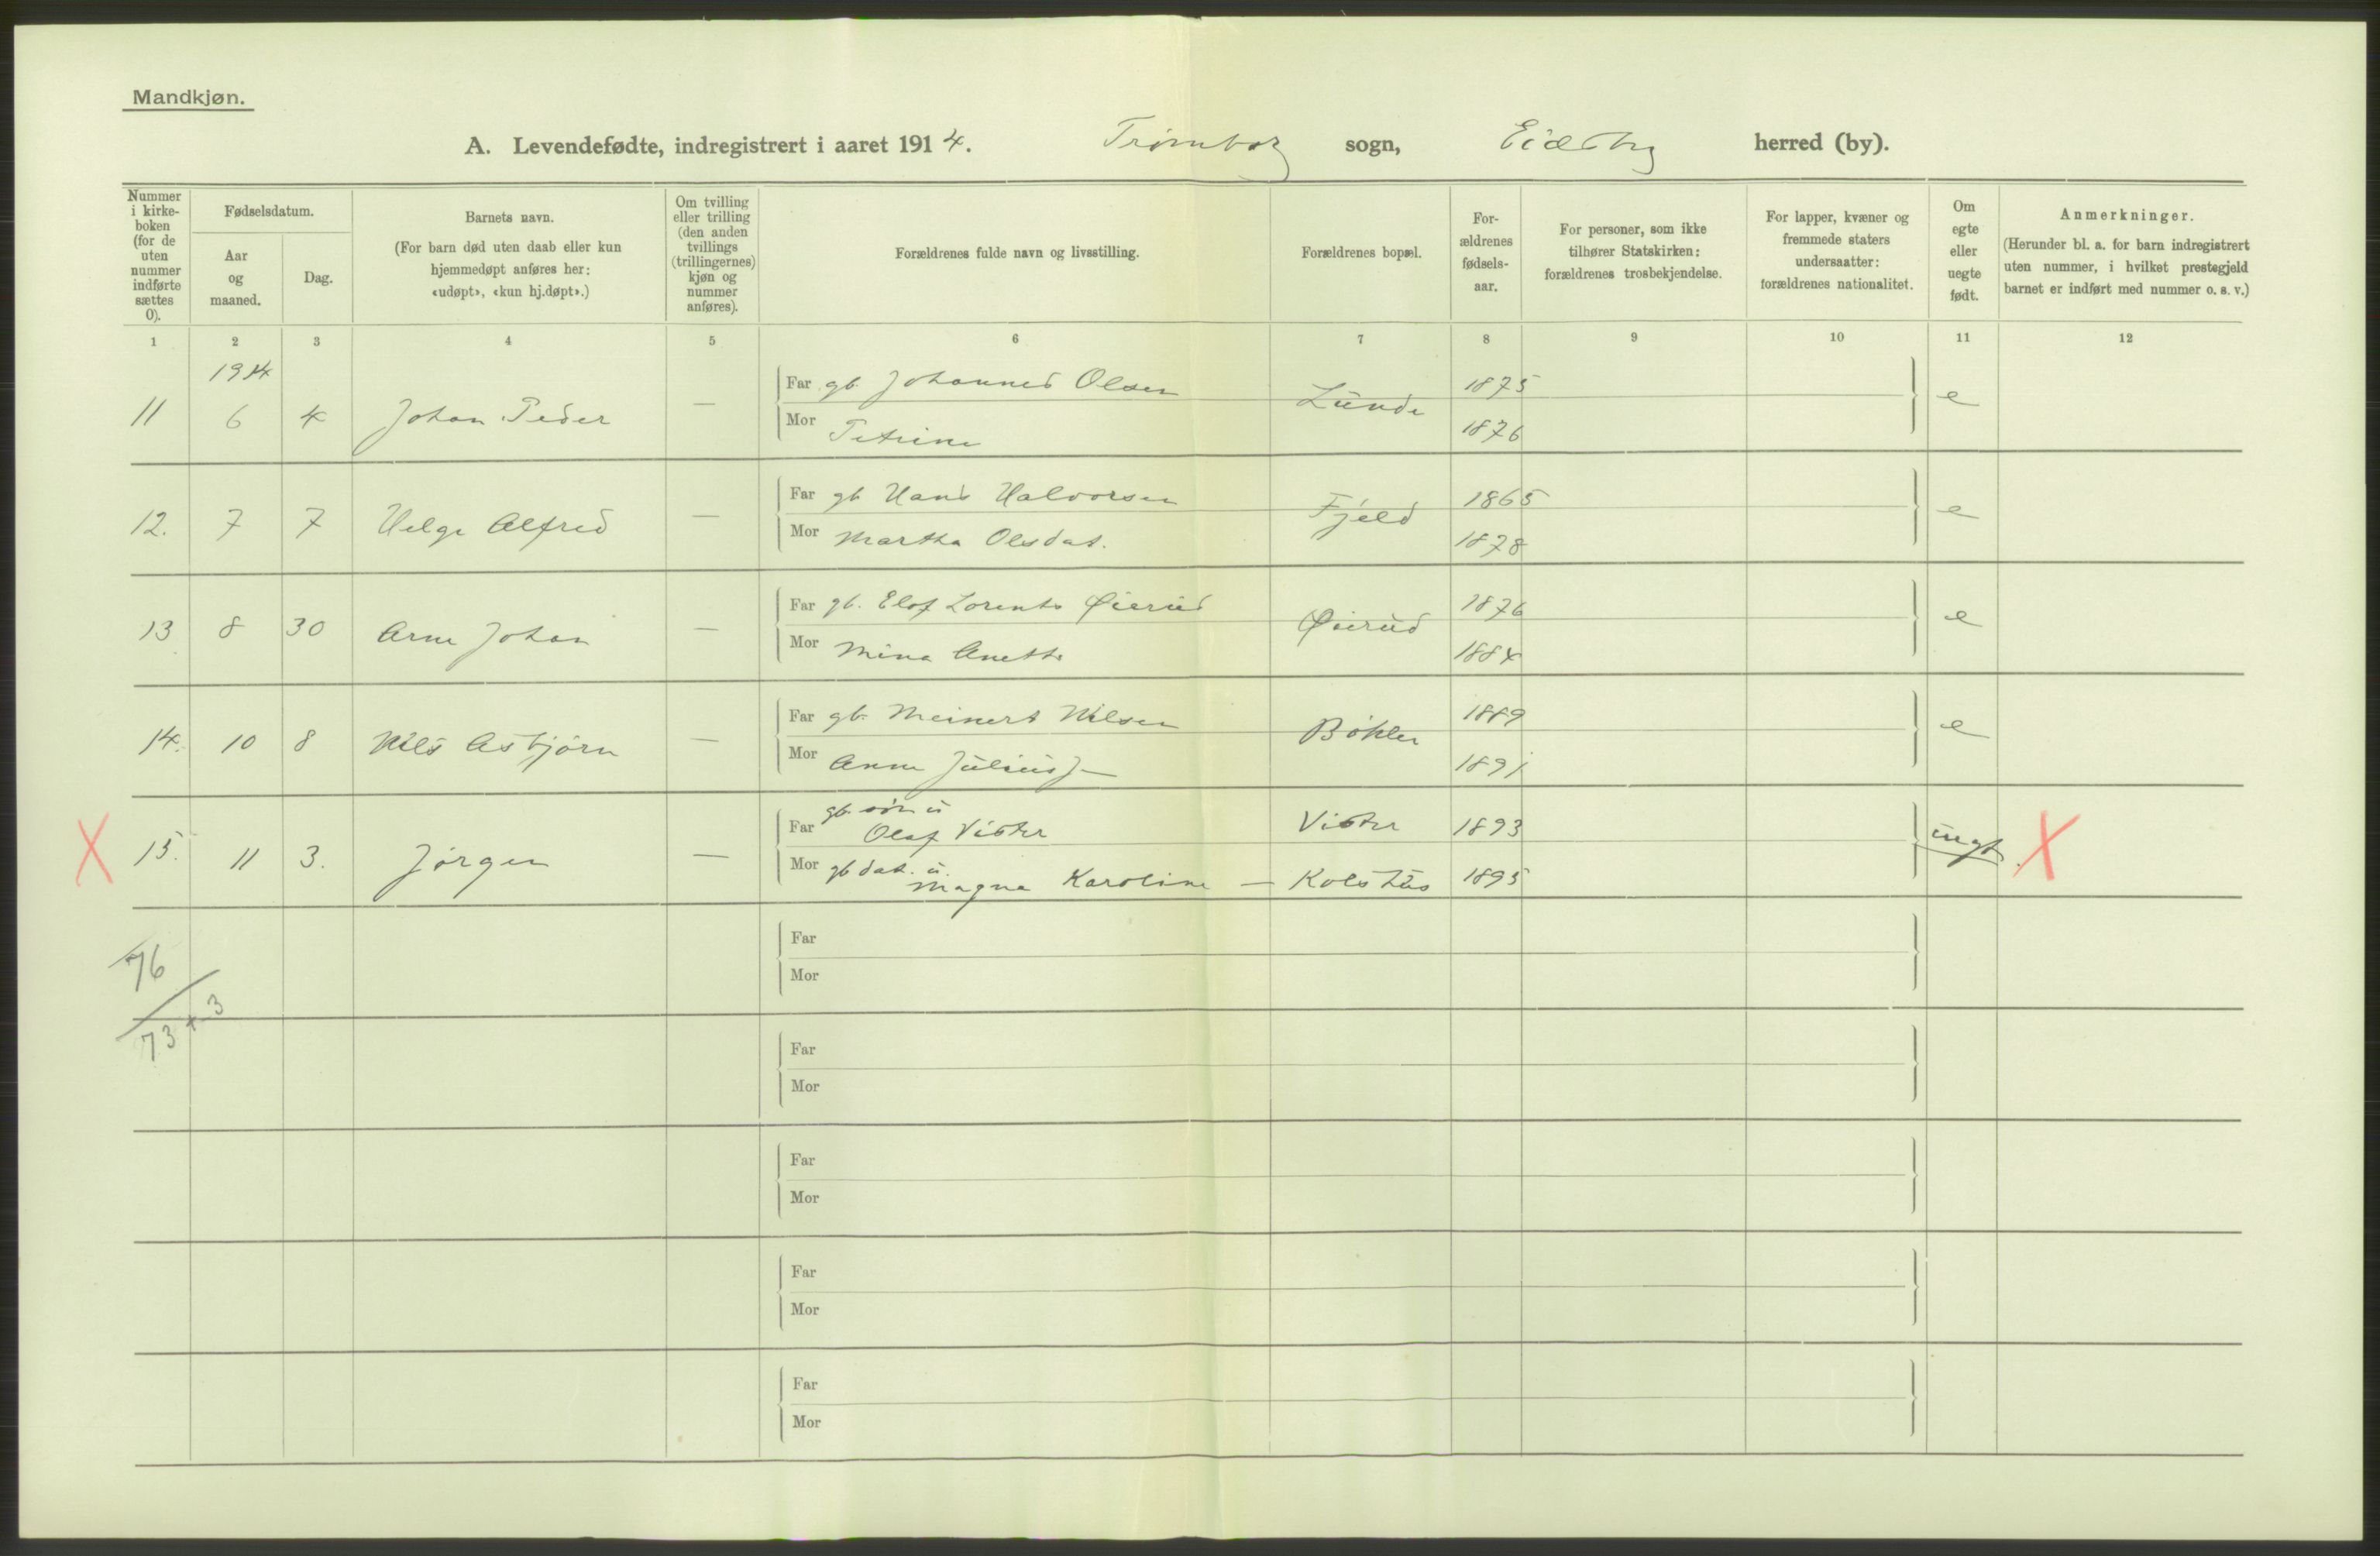 Mandkjøn.
A. Levendefødte, indregistrert i aaret 1914. Trømborg sogn, Eidsberg herred (by).
Nummer i kirke-boken (for de uten nummer indførte sættes 0).
Fødselsdatum.
Aar og maaned.
Dag.
Barnets navn.
(For barn død uten daab eller kun hjemmedøpt anføres her: «udøpt», «kun hj.døpt».)
Om tvilling eller trilling (den anden tvillings (trillingernes) kjøn og nummer anføres).
Forældrenes fulde navn og livsstilling.
Forældrenes bopæl.
For-ældrenes fødsels-aar.
For personer, som ikke tilhører Statskirken: forældrenes trosbekjendelse.
For lapper, kvæner og fremmede staters undersaatter: forældrenes nationalitet.
Om egte eller uegte født.
Anmerkninger.
(Herunder bl. a. for barn indregistrert uten nummer, i hvilket prestegjeld barnet er indført med nummer o. s. v.)
1 2 3 4 5 6 7 8 9 10 11 12
1914
11 6 4 Johan Peder — Far gb. Johannes Olsen Lunde 1875 e
Mor Petrine 1876
12. 7 7 Helge Alfred — Far gb Hans Halvorsen Fjeld 1865 e
Mor Martha Olsdat. 1878
13 8 30 Arne Johan — Far gb. Elof Lorents Øierud Øierud 1876 e
Mor Mina Anette 1884
14. 10 8 Nils Asbjørn — Far gb. Meinert Nilsen Bøhler 1889 e
Mor Anna 1891
X 15. 11 3. Jørgen — Far gb. søn u Olaf Vister Vister 1893 uegt. X
Mor gb dat. u. Magna Karoline — Kolstad 1895
76
73 + 3
Far
Mor
Far
Mor
Far
Mor
Far
Mor
Far
Mor